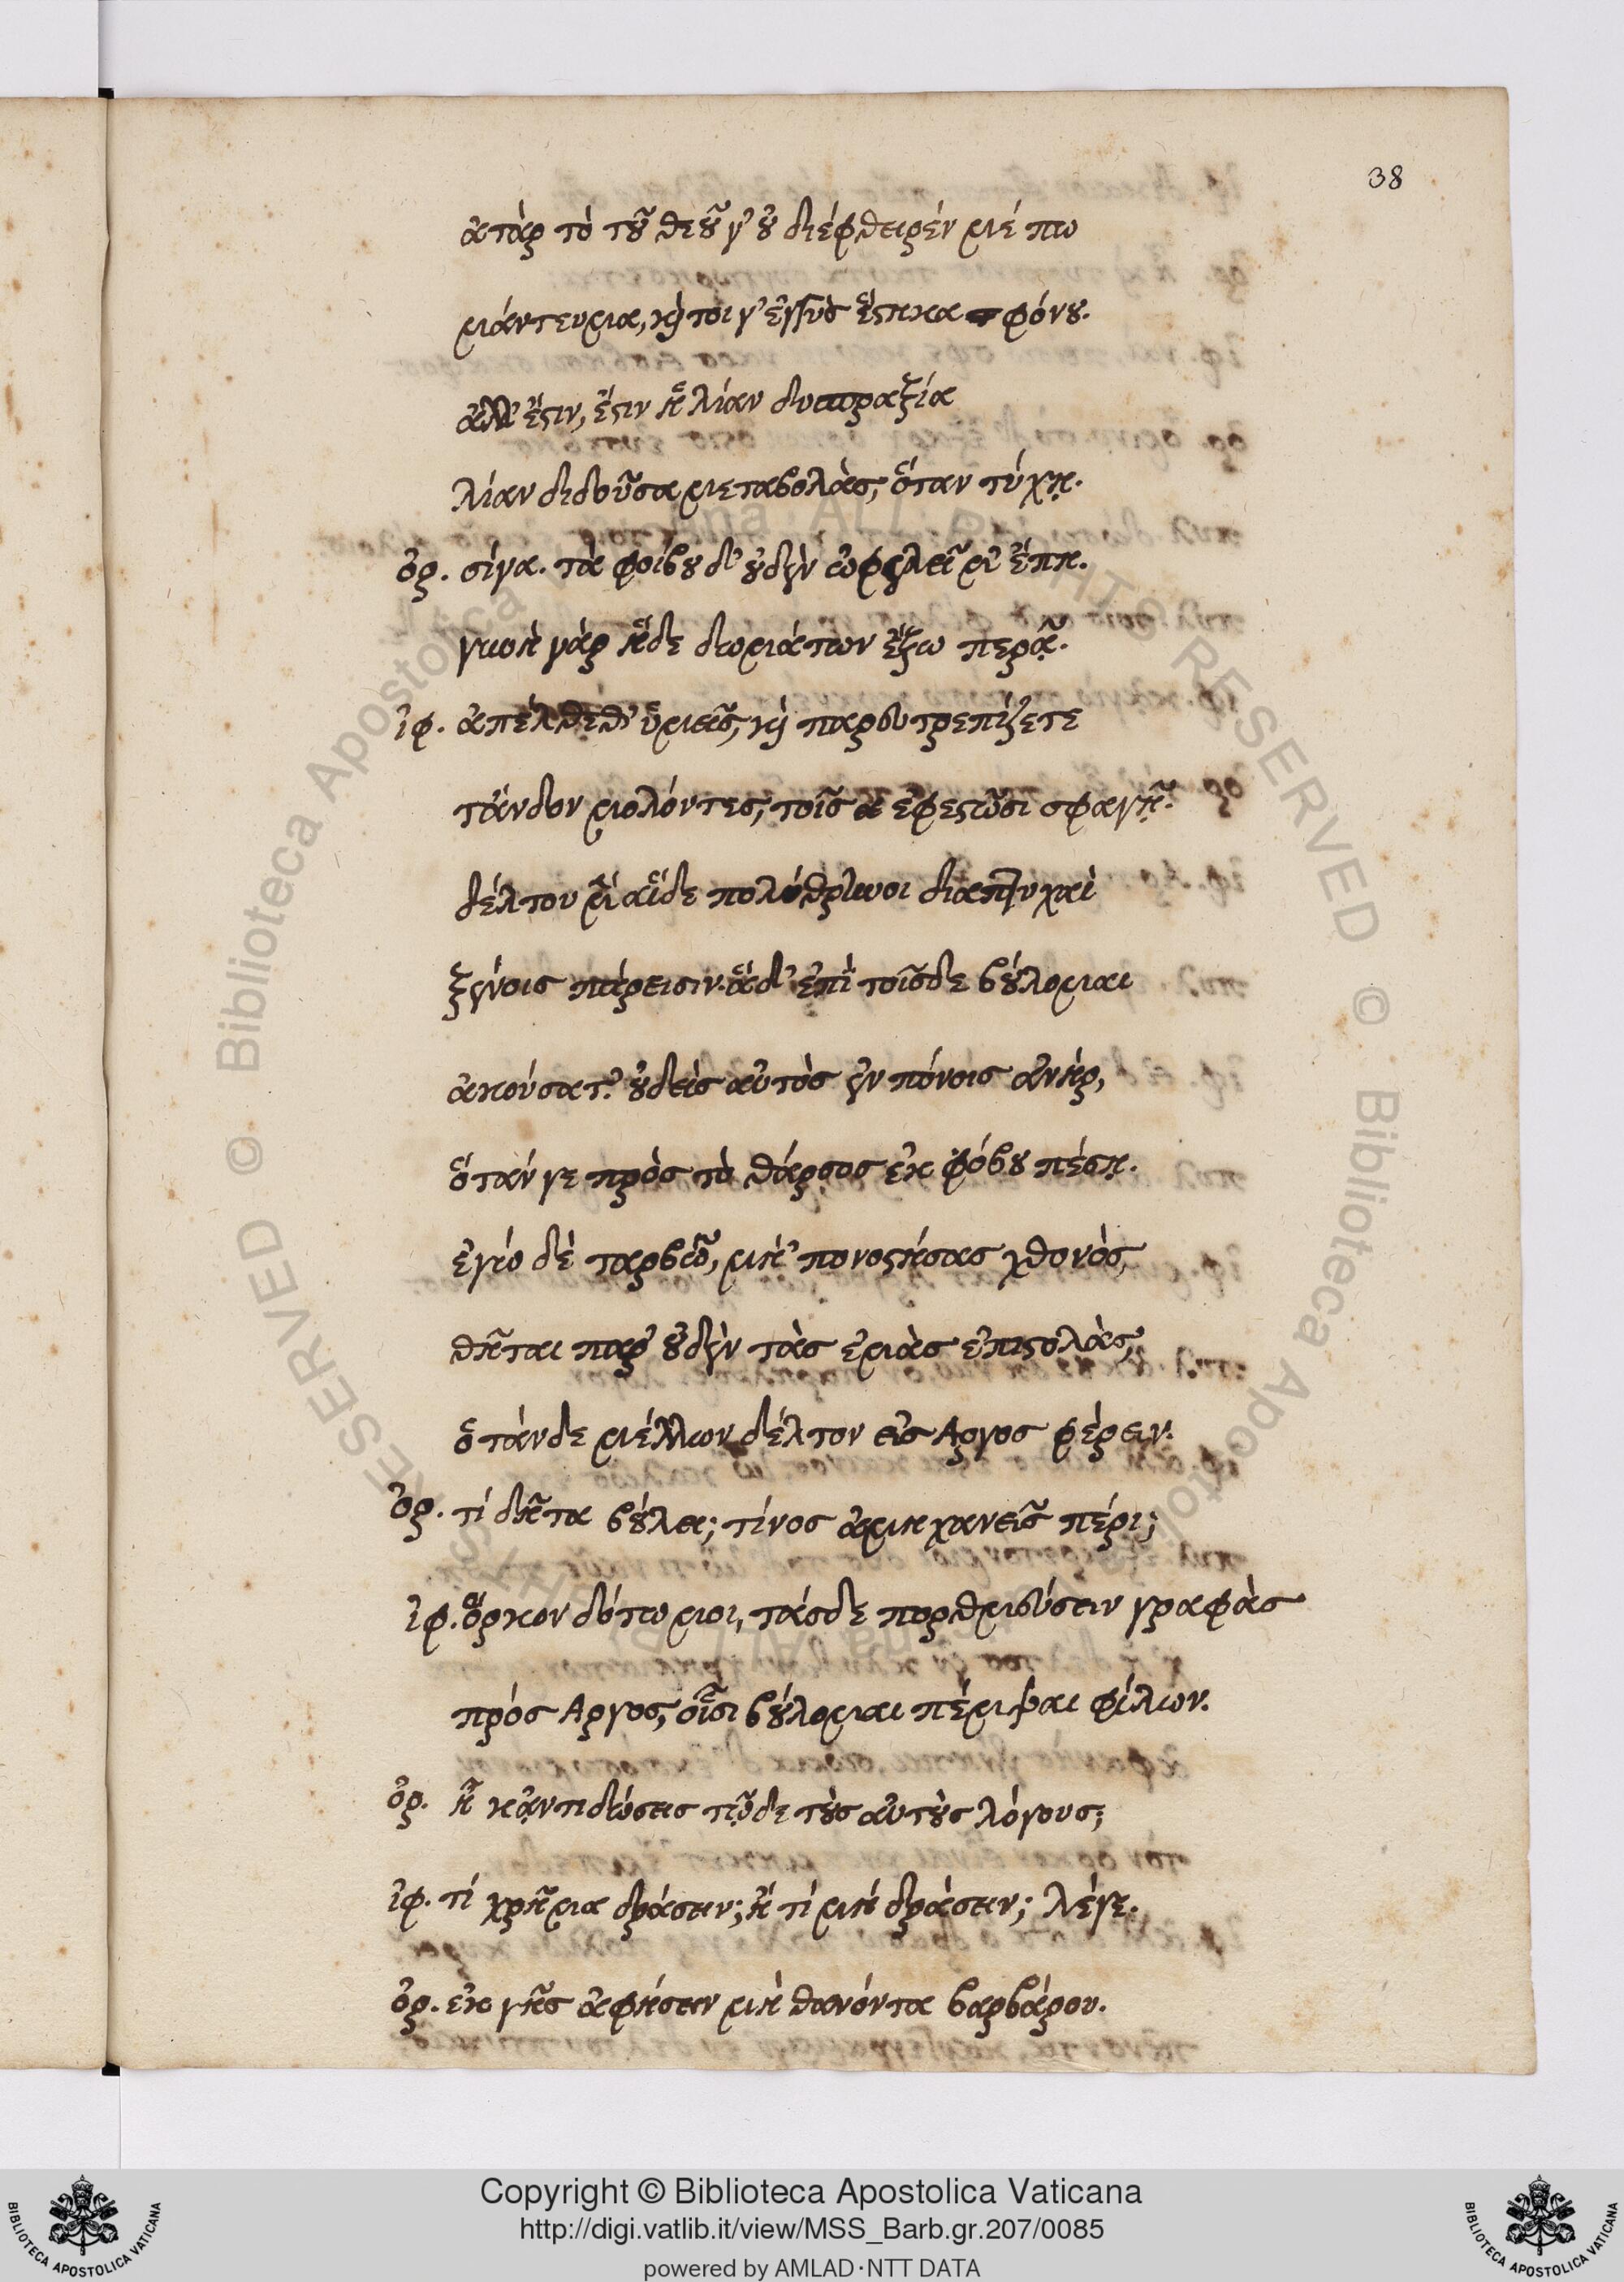 38
ἀτὰρ τὸ τοῦ θεοῦ γ' οὐ διέφθειρέν μέ πω
μάντευμα, καί τοι γ' ἐγγὺς ἕστηκα φόνου.
ἀλλ' ἔστιν, ἔστιν ἡ λίαν δυσπραξία
λίαν διδοῦσα μεταβολὰς, ὅταν τύχῃ.
ὀρ. σίγα. τὰ φοίβου δ' οὐδὲν ὠφελεῖ μ' ἔπη.
γυνὴ γὰρ ἥδε δωμάτων ἔξω περᾷ.
ἰφ. ἀπέλθεθ' ὑμεῖς, καὶ παρευτρεπίζετε
τἄνδον μολόντες, τοῖς ἐφεστῶσι σφαγῇ.
δέλτου μὲν αἵδε πολύθρηνοι διαπτυχαὶ
ξένοις πάρεισιν. ἃ δ' ἐπὶ τοῖσδε βούλομαι
ἀκούσατ'. οὐδεὶς αὐτὸς ἐν πόνοις ἀνὴρ,
ὅτάν γε πρὸς τὸ θάρσος ἐκ φόβου πέσῃ.
ἐγὼ δὲ ταρβῶ, μὴ' πονοστήσας χθονὸς,
θῆται παρ' οὐδὲν τὰς ἐμὰς ἐπιστολὰς,
ὁ τάνδε μέλλων δέλτον εἰς Αργος φέρειν.
ὀρ. τί δῆτα βούλει; τίνος ἀμηχανεῖς πέρι;
ἰφ. ὅρκον δότω μοι, τάσδε πορθμεύσειν γραφὰς
πρὸς Αργος, οἷσι βούλομαι πέμψαι φίλων.
ὀρ. ἦ κᾀντιδώσεις τῷδε τοὺς αὐτοὺς λόγους;
ἰφ. τί χρῆμα δράσειν; ἢ τί μὴ δράσειν; λέγε.
ὀρ. ἐκ γῆς ἀφήσειν μὴ θανόντα βαρβάρου.
Copyright © Biblioteca Apostolica Vaticana
http://digi.vatlib.it/view/MSS_Barb.gr.207/0085
powered by AMLAD·NTT DATA